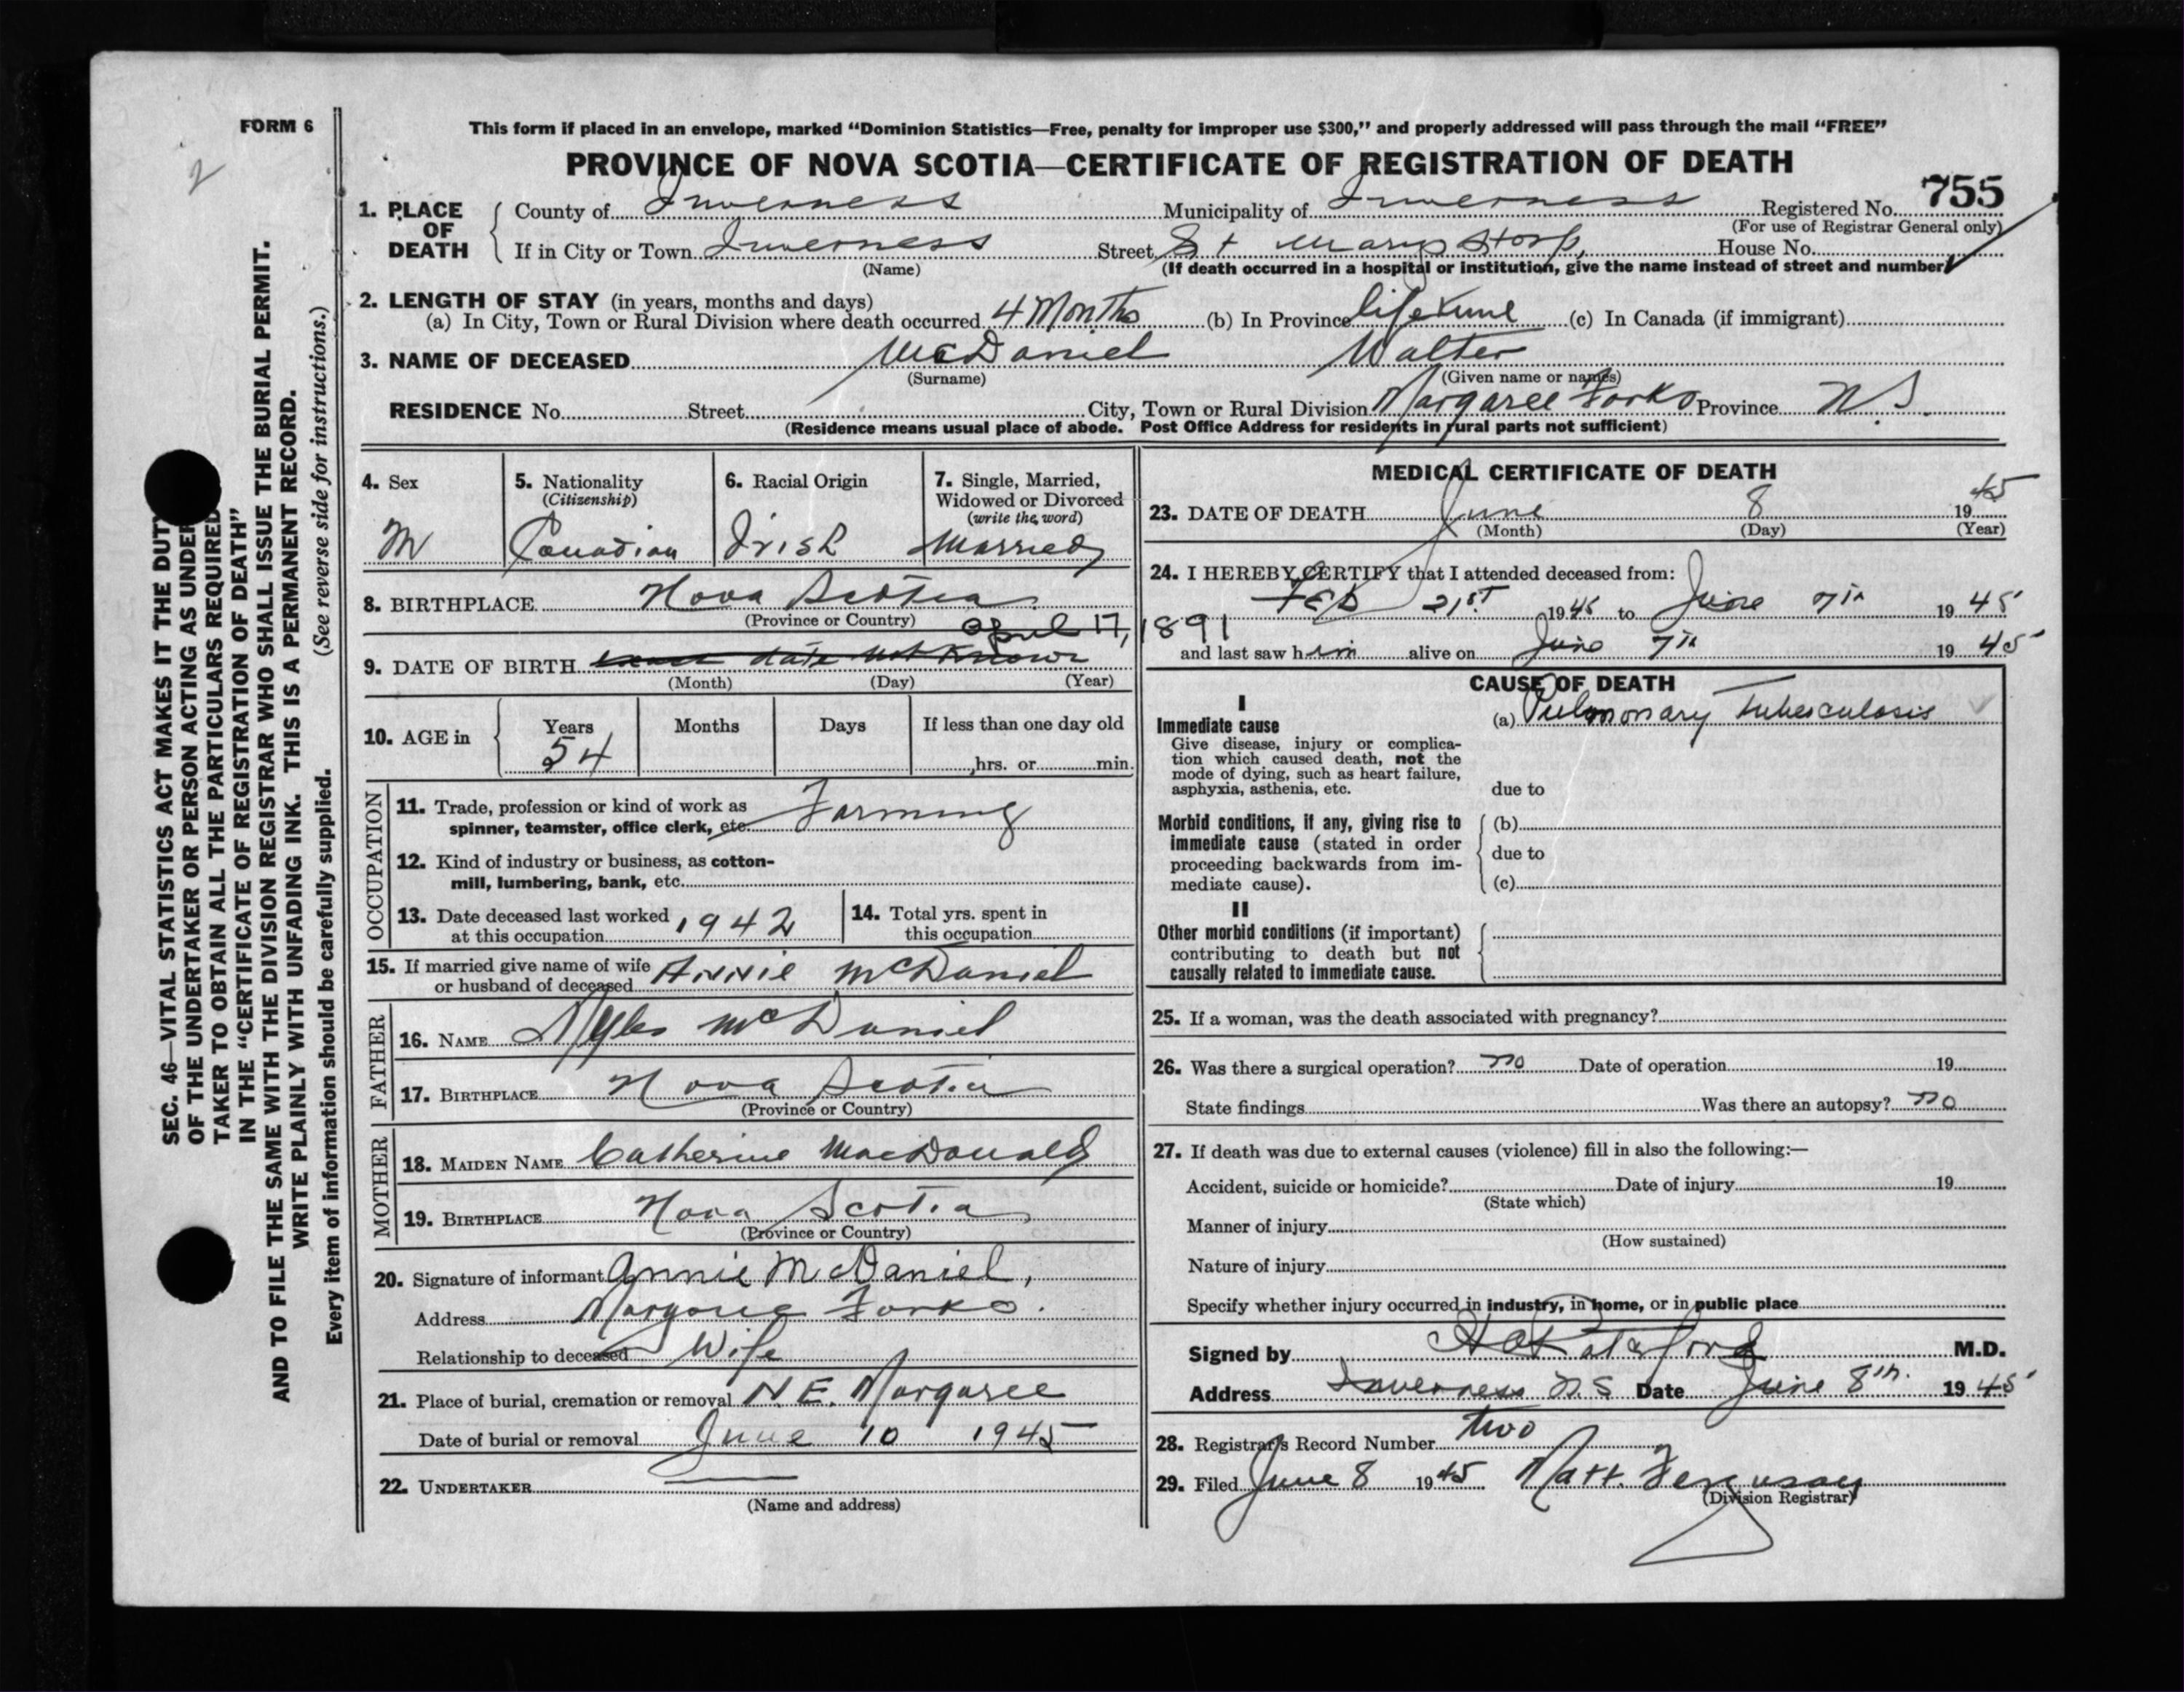 FORM 6
2
This form if placed in an envelope, marked “Dominion Statistics—Free, penalty for improper use $300,” and properly addressed will pass through the mail “FREE”
PROVINCE OF NOVA SCOTIA—CERTIFICATE OF REGISTRATION OF DEATH
755
1. PLACE OF DEATH
County of Inverness Municipality of Inverness Registered No.
(For use of Registrar General only)
If in City or Town Inverness Street St Marys Hosp, House No.
(Name) (If death occurred in a hospital or institution, give the name instead of street and number)
2. LENGTH OF STAY (in years, months and days)
(a) In City, Town or Rural Division where death occurred 4 Months (b) In Province lifetime (c) In Canada (if immigrant)
3. NAME OF DECEASED McDaniel Walter
(Surname) (Given name or names)
RESIDENCE No. Street City, Town or Rural Division Margaree Forks Province N.S.
(Residence means usual place of abode. Post Office Address for residents in rural parts not sufficient)
4. Sex
M
5. Nationality
(Citizenship)
Canadian
6. Racial Origin
Irish
7. Single, Married,
Widowed or Divorced
(write the word)
Married
8. BIRTHPLACE Nova Scotia
(Province or Country)
April 17, 1891
9. DATE OF BIRTH exact date not known
(Month) (Day) (Year)
10. AGE in
Years Months Days If less than one day old
54 hrs. or min.
OCCUPATION
11. Trade, profession or kind of work as
spinner, teamster, office clerk, etc. Farming
12. Kind of industry or business, as cotton-
mill, lumbering, bank, etc.
13. Date deceased last worked
at this occupation 1942
14. Total yrs. spent in
this occupation
15. If married give name of wife
or husband of deceased Annie McDaniel
FATHER
16. NAME Myles McDaniel
17. BIRTHPLACE Nova Scotia
(Province or Country)
MOTHER
18. MAIDEN NAME Catherine MacDonald
19. BIRTHPLACE Nova Scotia
(Province or Country)
20. Signature of informant Annie McDaniel,
Address Margaree Forks.
Relationship to deceased Wife
21. Place of burial, cremation or removal N.E. Margaree
Date of burial or removal June 10 1945
22. UNDERTAKER
(Name and address)
MEDICAL CERTIFICATE OF DEATH
23. DATE OF DEATH June 8 1945
(Month) (Day) (Year)
24. I HEREBY CERTIFY that I attended deceased from:
Feb 21st 1945 to June 7th 1945
and last saw him alive on June 7th 1945
CAUSE OF DEATH
I
Immediate cause
(a) Pulmonary Tuberculosis
Give disease, injury or complica-
tion which caused death, not the
mode of dying, such as heart failure,
asphyxia, asthenia, etc.
due to
Morbid conditions, if any, giving rise to
immediate cause (stated in order
proceeding backwards from im-
mediate cause).
(b)
due to
(c)
II
Other morbid conditions (if important)
contributing to death but not
causally related to immediate cause.
25. If a woman, was the death associated with pregnancy?
26. Was there a surgical operation? no Date of operation 19
State findings Was there an autopsy? no
27. If death was due to external causes (violence) fill in also the following:—
Accident, suicide or homicide? Date of injury 19
(State which)
Manner of injury
(How sustained)
Nature of injury
Specify whether injury occurred in industry, in home, or in public place
Signed by M.D.
Address Inverness N.S Date June 8th. 1945
28. Registrar's Record Number two
29. Filed June 8 1945 Matt. Ferguson
(Division Registrar)
SEC. 46—VITAL STATISTICS ACT MAKES IT THE DUTY
OF THE UNDERTAKER OR PERSON ACTING AS UNDER
TAKER TO OBTAIN ALL THE PARTICULARS REQUIRED
IN THE “CERTIFICATE OF REGISTRATION OF DEATH”
AND TO FILE THE SAME WITH THE DIVISION REGISTRAR WHO SHALL ISSUE THE BURIAL PERMIT.
WRITE PLAINLY WITH UNFADING INK. THIS IS A PERMANENT RECORD.
Every item of information should be carefully supplied. (See reverse side for instructions.)